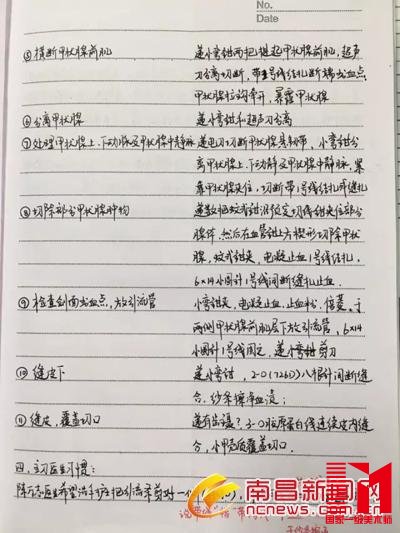 No.
Date
⑤横断甲状腺前肌 递小弯钳两把提起甲状腺前肌，超声
刀分离切断，带1号线结扎断端出血点，
甲状腺拉钩牵开，暴露甲状腺
⑥分离甲状腺 递小弯钳和超声刀分离
⑦处理甲状腺上、下动脉及甲状腺中静脉 递电刀切断甲状腺悬韧带，小弯钳分
离甲状腺上、下动静及甲状腺中静脉，
靠甲状腺夹住，切断带1号线结扎再缝扎
⑧切除部分甲状腺肿物 递数把蚊式钳沿预定切线钳夹住部分
腺体，然后在血管钳上方楔形切除甲状
腺，蚊式钳夹，电凝止血1号线结扎，
6×14小圆针1号线间断缝扎止血
⑨检查创面出血点，放引流管 小弯钳夹，电凝止血、止血粉、倍菱，于
两侧甲状腺前肌层下放引流管，6×14
小圆针1号线固定，递小弯钳剪刀
⑩缝皮下 递小弯钳，2-0(726D)八根针间断缝
合，纱条擦净血渍；
⑪缝皮，覆盖切口 递有齿镊？3-0胶原蛋白线连续皮内缝
合，小甲壳质覆盖切口。
四、主刀医生习惯：
医生希望洗手护士把引流
南昌新闻网
ncnews.com.cn
国家一级美术师